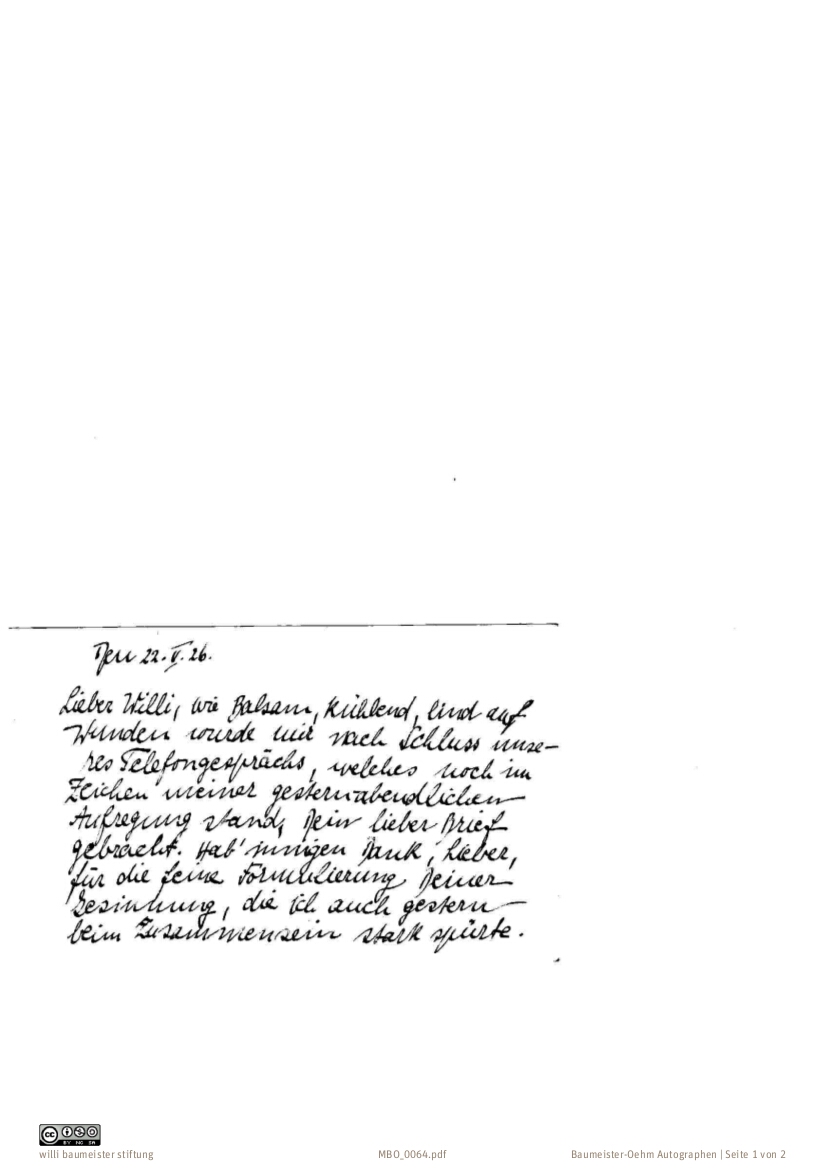 Den 22. V. 26.
Lieber Willi, wie Balsam, kühlend, lind auf
Wunden wurde mir nach Schluss unse-
res Telefongesprächs, welches noch im
Zeichen meiner gesternabendlichen
Aufregung stand, Dein lieber Brief
gebracht. Hab' innigen Dank, Lieber,
für die feine Formulierung Deiner
Gesinnung, die ich auch gestern
beim Zusammensein stark spürte.
cc BY NC SA
willi baumeister stiftung MBO_0064.pdf Baumeister-Oehm Autographen | Seite 1 von 2